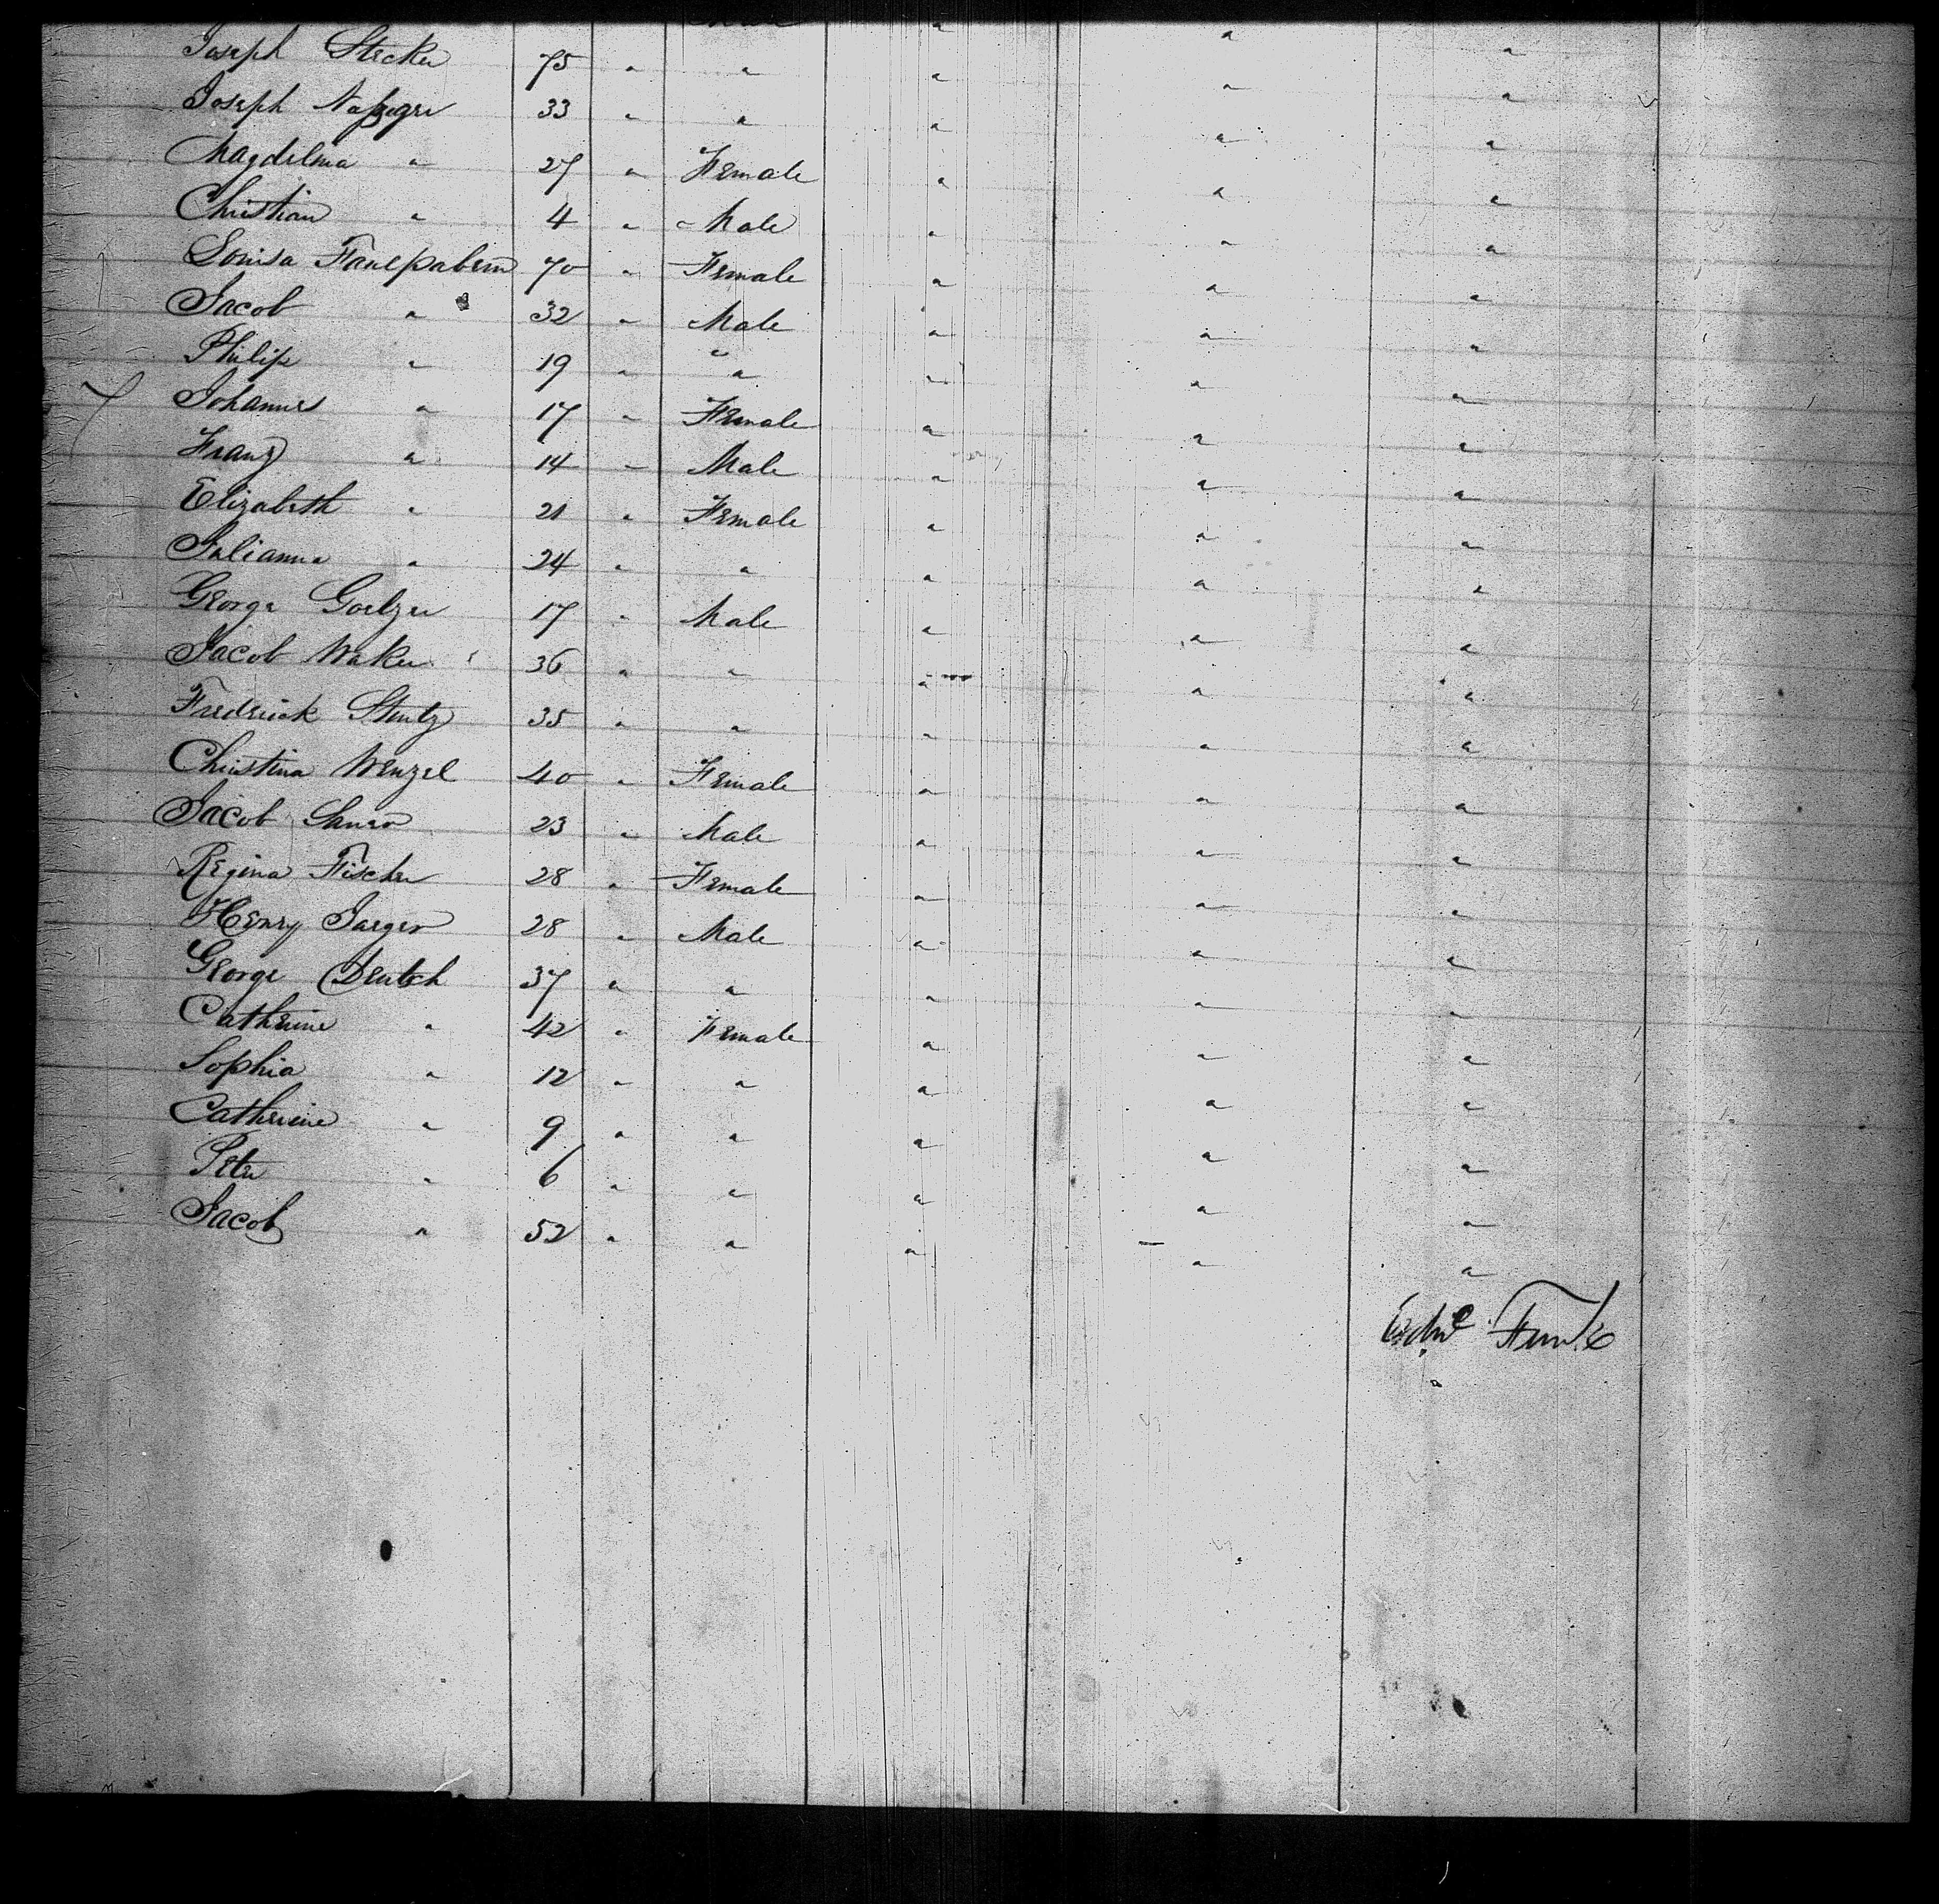 Joseph Stecker 75 " " " " "
Joseph Nafziger 33 " " " " "
Magdelena " 27 " Female " " "
Christian " 4 " Male " " "
Louisa 70 " Female " " "
Jacob " 32 " Male " " "
Philip " 19 " " " " "
Johanna " 17 " Female " " "
Franz " 14 " Male " " "
Elizabeth " 21 " Female " " "
Julianna " 24 " " " " "
George Goelzer 17 " Male " " "
Jacob Waker 36 " " " " "
Fredrick Stentz 35 " " " " "
Christina Wenzel 40 " Female " " "
Jacob 23 " Male " " "
Regina Fischer 28 " Female " " "
Henry Jaeger 28 " Male " " "
George Deutch 37 " " " " "
Catherine " 42 " Female " " "
Sophia " 12 " " " " "
Catherine " 9 " " " " "
Peter " 6 " " " " "
Jacob " 52 " " " " "